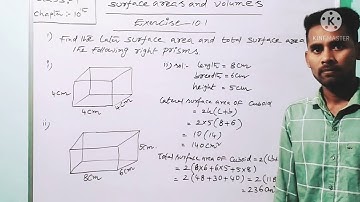 Chapter:- 10
surface areas and volumes
Exercise-10.1
1) Find the later surface area and total surface area
the following right prisms
i)
4cm
4cm
ii)
8cm
6cm
5cm
ii) sol:- length = 8cm
breadth = 6cm
height = 5cm
Lateral surface area of cuboid
= 2h(l+b)
= 2x5(8+6)
= 10(14)
= 140cm²
Total surface area of cuboid = 2(
= 2(8x6+6x5+5x8)
= 2(48+30+40)
= 2(118
= 236cm²
K
KINEMASTER